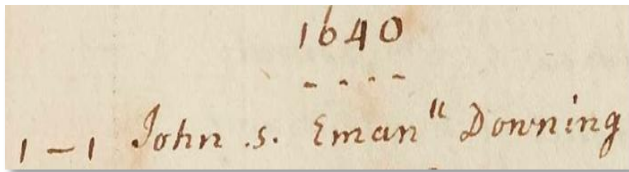 1640
- - - -
1 – 1 John .s. Eman" Downing